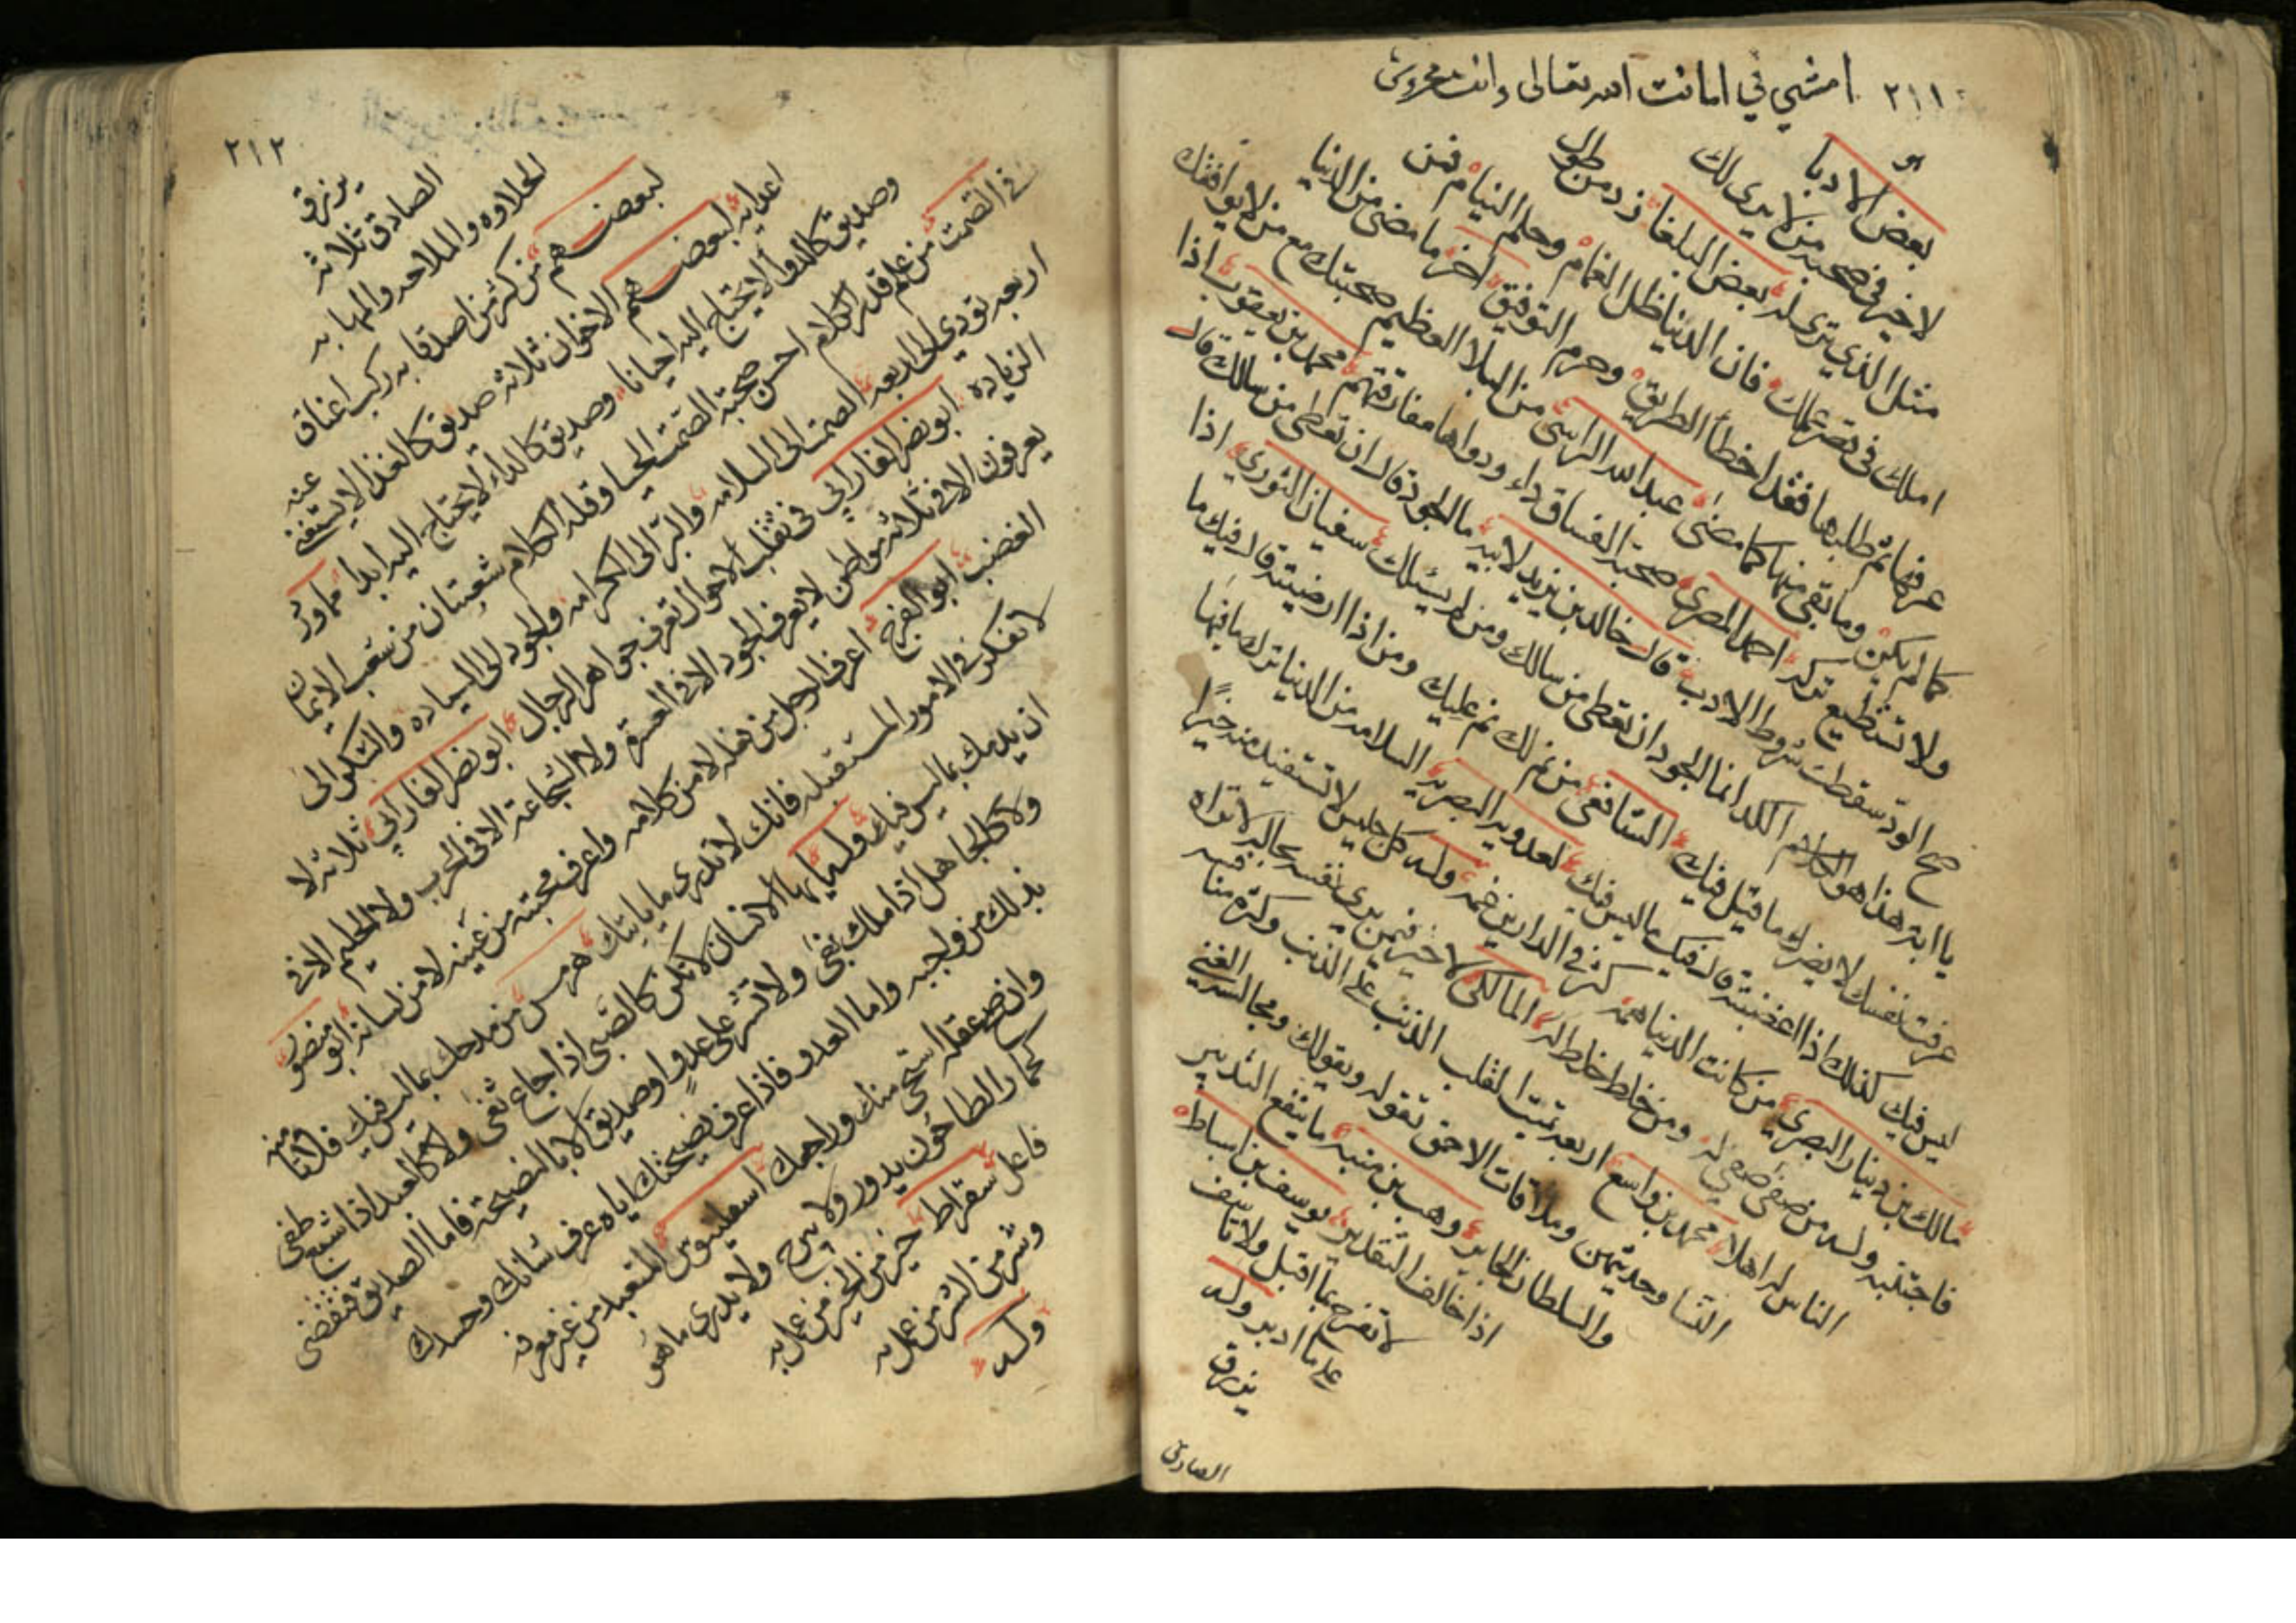 ٢١١ امشي في امانت الله تعالى وانت محروس
بعض الادبا
لا خير في صحبة من لا يرى لك
مثل الذي ترى له بعض البلغا زد من طول
املك في قصر عملك فان الدنيا ظل الغمام وحلم النيام فمن
عرفها ثم طلبها فقد اخطأ الطريق وحرم التوفيق اخر ما مضى من الدنيا
كما لم يكن وما بقي منها كما مضى عبد الله الراسي من البلا العظيم صحبتك مع من لا يوافقك
ولا تستطيع تركه احمد المصري صحبة الفساق داء ودواها مفارقتهم محمد بن يعقوب اذا
صح الود سقطت شروط الادب قال خالد بن يزيد لابيه ما الجود قال ان تعطي من سالك قال
يا ابه هذا هو الكد انما الجود ان تعطي من سالك ومن لم يسئلك سفيان الثوري اذا
عرفت نفسك لا يضرك ما قيل فيك الشافعي من نم لك نم عليك ومن اذا ارضيته قال فيك ما
ليس فيك كذلك اذا اغضبته قال فيك ما ليس فيك لعدويه البصريه السلامه من الدنيا ترك ما فيها
مالك بن دينار البصري من كانت الدنيا همه كثر في الدارين غمه وله كل جليس لا تستفيد منه خيرا
فاجتنبه وله من صفى صفي له ومن خلط خلط له المالكي لا خير فيمن يرى نفسه بحاله لا تراه
الناس له اهلا محمد بن واسع اربعه تميت القلب الذنب على الذنب وكثرة مناقشه
النسا وحديثهن وملاقات الاحمق تقوله ويقول لك ومجالسه الغني
والسلطان الجاير وهب بن منبه ما ينفع التدبير
اذا خالف التقدير يوسف بن اسباط
لا تفرح بما اقبل ولا تاسف
على ما ادبر وله
يرزق
الصادق
٢١٢
يرزق
الصادق ثلاثه
الحلاوه والملاحه والمهابه
لبعضهم من كثر من اصدقا به ركب اعناق
اعدايه لبعضهم الاخوان ثلاثه صديق كالغذا لا يستغنى عنه
وصديق كالدوا لا يحتاج اليه احيانا وصديق كالداء لا يحتاج اليه ابدا
في الصمت من علم قدر الكلام احسن صحبة الصمت الحيا وقلة الكلام شعبتان من شعب الايمان
اربعه تودي الى اربعه الصمت الى السلامه والبر الى الكرامه والجود الى السياده والشكر الى
الزياده ابو نصر الفارابي في تقلب الاحوال تعرف جواهر الرجال ابو نصر الفارابي ثلاثه لا
يعرفون الا في ثلاثه مواطن لا يعرف الجود الا في العسرة ولا الشجاعة الا في الحرب ولا الحليم الا في
الغضب ابو الفرج اعرف الرجل من فعله لا من كلامه واعرف محبته من عينه لا من لسانه ابو منصور
لا تفكر في الامور المستقبله فانك لا تدري ما ياتيك هرمس من مدحك بما ليس فيك فلا تامنه
ان يذمك بما ليس فيك وله يا ايها الانسان لا تكن كالصبي اذا جاع ثغى ولا كالعبد اذا شبع طغى
ولا كالجاهل اذا ملك بغى ولا تشر على عدو او صديق الا بالنصيحه فاما الصديق فتقضى
بذلك من واجبه واما العدو فاذا عرف نصيحتك اياه عرف شانك وحسدك
وان صح عقله استحى منك وراجمك اسقلبيوس المتعبد من غير معرفه
كحمار الطاحون يدور ولا يبرح ولا يدري ما هو
فاعل سقراط خير من الخير من عمل به
وشر من الشر من عمل به
وله